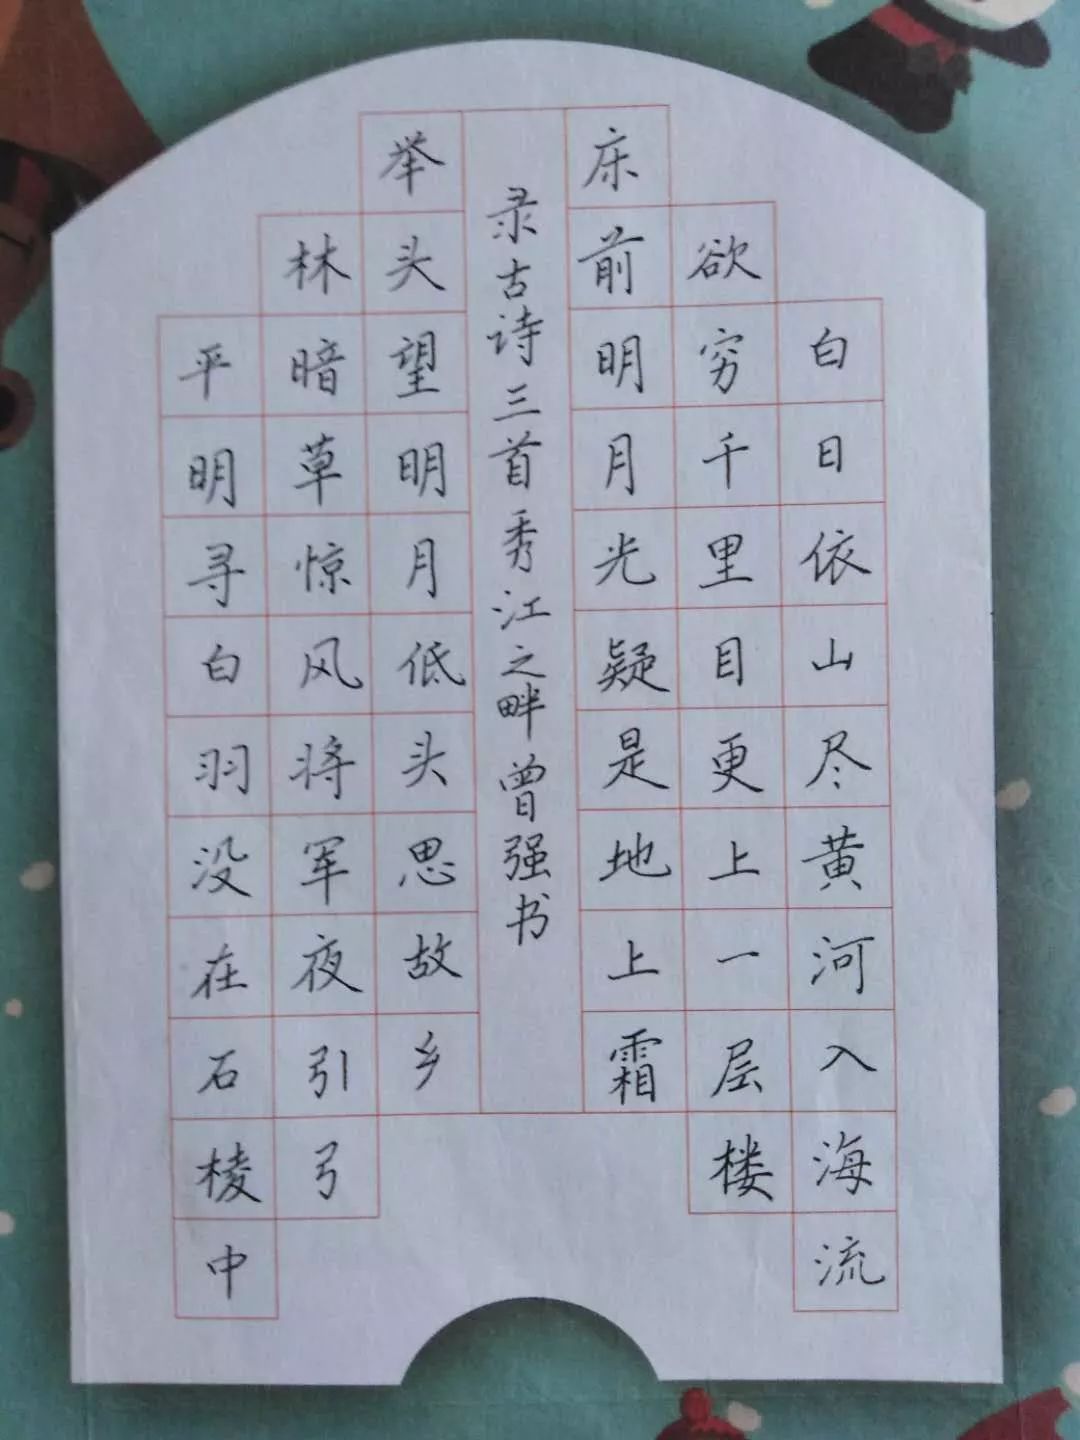 白日依山尽黄河入海流
欲穷千里目更上一层楼
床前明月光疑是地上霜
录古诗三首秀江之畔曾强书
举头望明月低头思故乡
林暗草惊风将军夜引弓
平明寻白羽没在石棱中